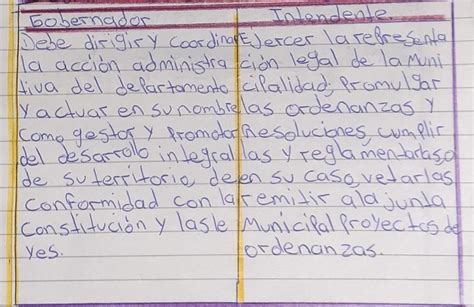 Gobernador
Debe dirigir y coordinar
la acción administra
tiva del departamento
y actuar en su nombre
como gestor y promotor
del desarrollo integral
de su territorio, de
conformidad con la
Constitución y las le
yes.
Intendente.
Ejercer la representa
ción legal de la Muni
cipalidad; Promulgar
las ordenanzas y
Resoluciones, cumplir
las y reglamentarlas o
en su caso, vetarlas
remitir a la junta
Municipal Proyectos de
ordenanzas.